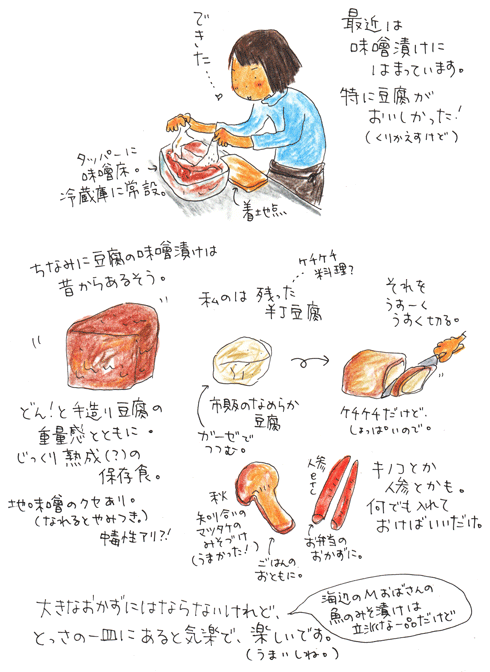 できた…
最近は
味噌漬けに
はまっています。
特に豆腐が
おいしかった!
(くりかえすけど)
タッパーに
味噌床。
冷蔵庫に常設。
着地点
ちなみに豆腐の味噌漬けは
昔からあるそう。
どん!と手造り豆腐の
重量感とともに。
じっくり熟成(?)の
保存食。
地味噌のクセあり。
(なれるとやみつき。)
中毒性アリ?!
ケチケチ
料理?
私のは 残った
半丁豆腐
市販のなめらか
豆腐
ガーゼで
つつむ。
それを
うすーく
うすく切る。
ケチケチだけど、
しょっぱいので。
秋
知り合いの
マツタケの
みそづけ
(うまかった!)
ごはんの
おともに。
人参
etc
お弁当の
おかずに。
キノコとか
人参とかも。
何でも入れて
おけばいいだけ。
大きなおかずにはならないけれど、
とっさの一皿にあると気楽で、楽しいです。
(うまいしね。)
海辺のMおばさんの
魚のみそ漬けは
立派な一品だけど